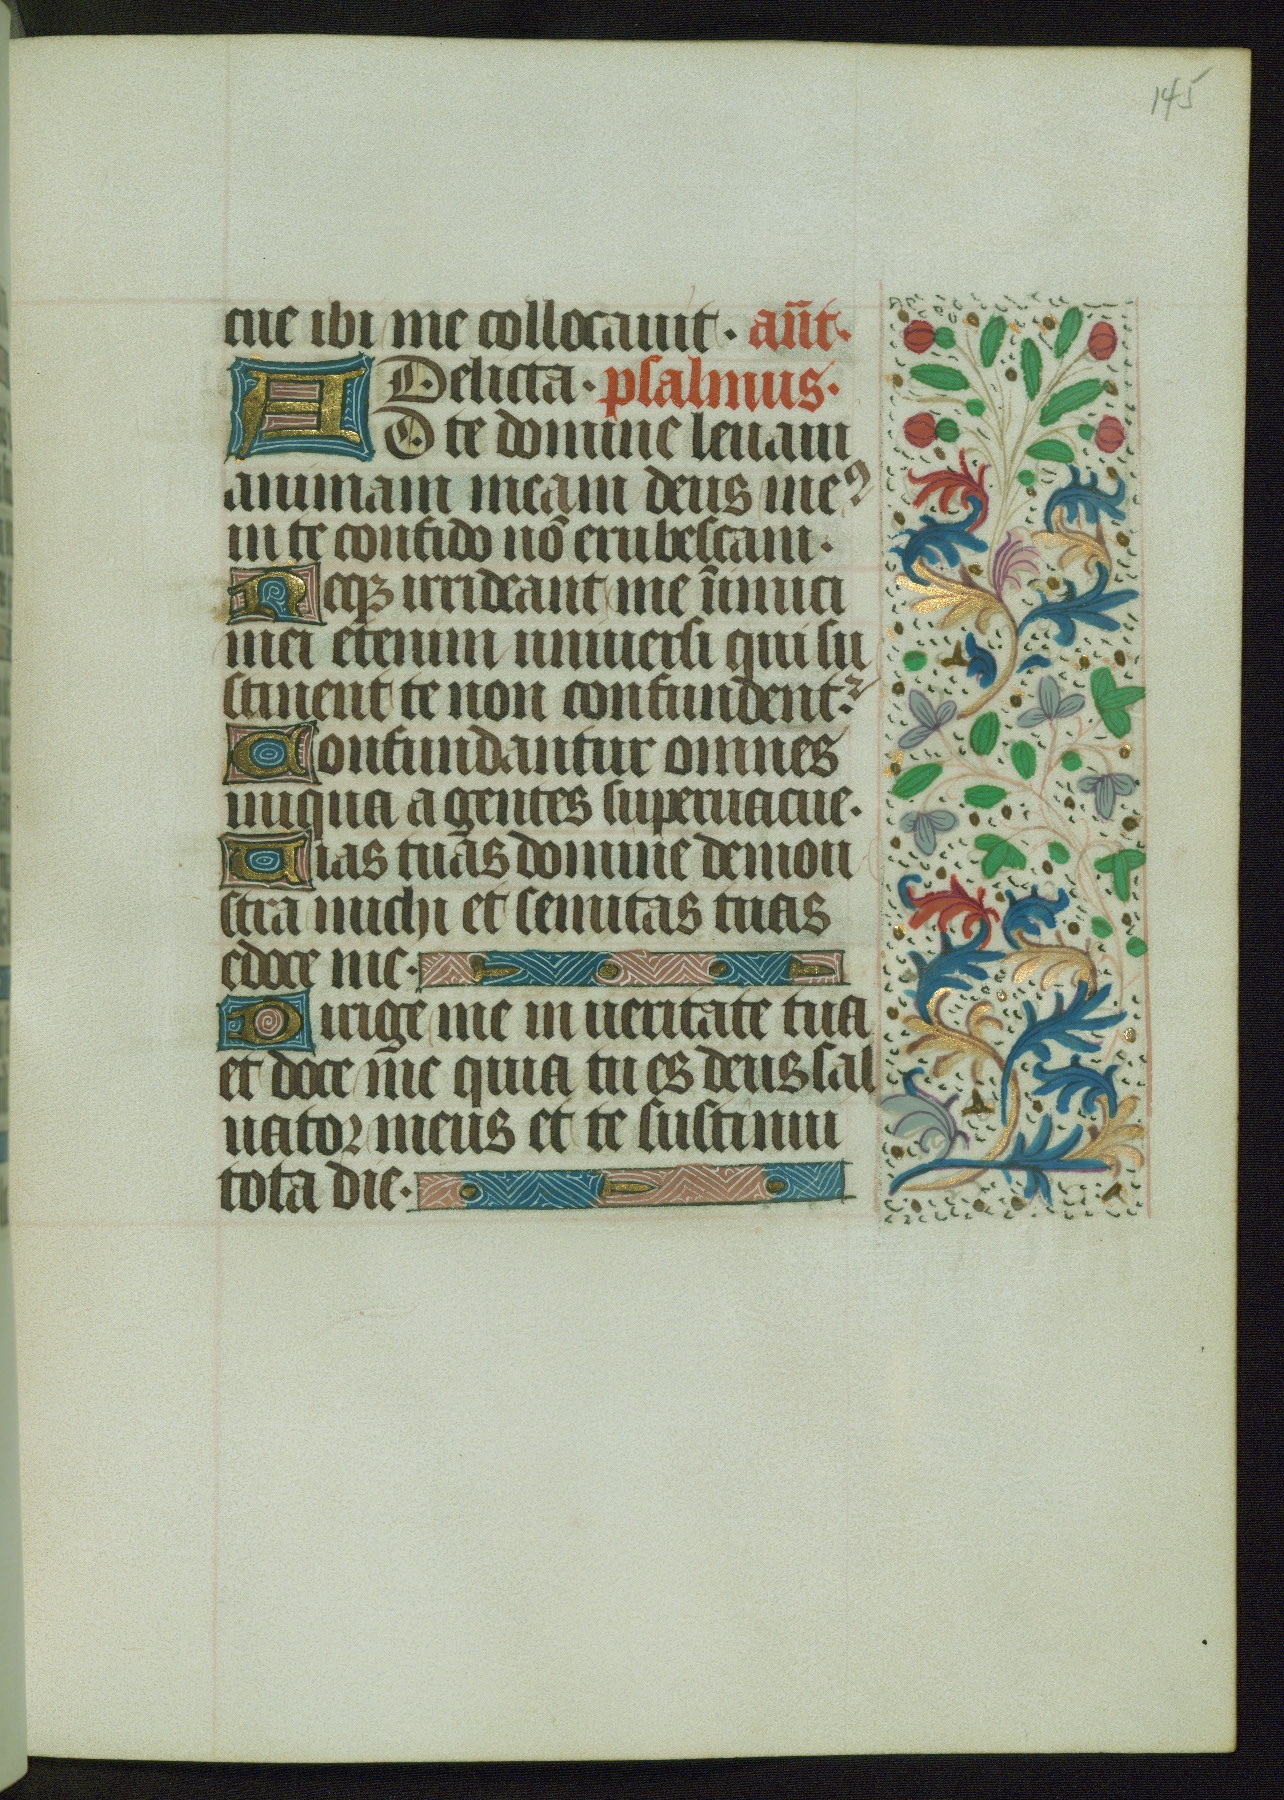 145
cue ibi me collocauit. an̄t.
Delicta. psalmus.
AD te domine leuaui
animam meam deus meꝰ
in te confido nō erubescam.
Neqꝫ irrideant me īnimici
mei etenim uniuersi qui su
stinent te non confundentᷣ.
Confundantur omnes
iniqua agentes superuacue.
Uias tuas domine demon
stra michi et semitas tuas
edoce me.
Dirige me in ueritate tua
et doce m̄e quia tu es deus sal
uator meus et te sustinui
tota die.